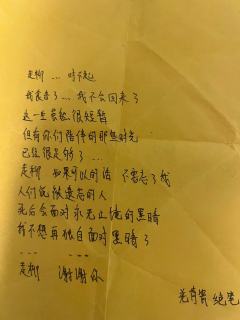 走柳 … 对不起
我食言了… 我不会回来了
这一生虽然很短暂
但有你们陪伴的那些时光
已经很足够了…
走柳 如果可以的话 不要忘了我
人们说被遗忘的人
死后会面对永无止境的黑暗
我不想再独自面对黑暗了
… …
走柳 谢谢你
绝笔